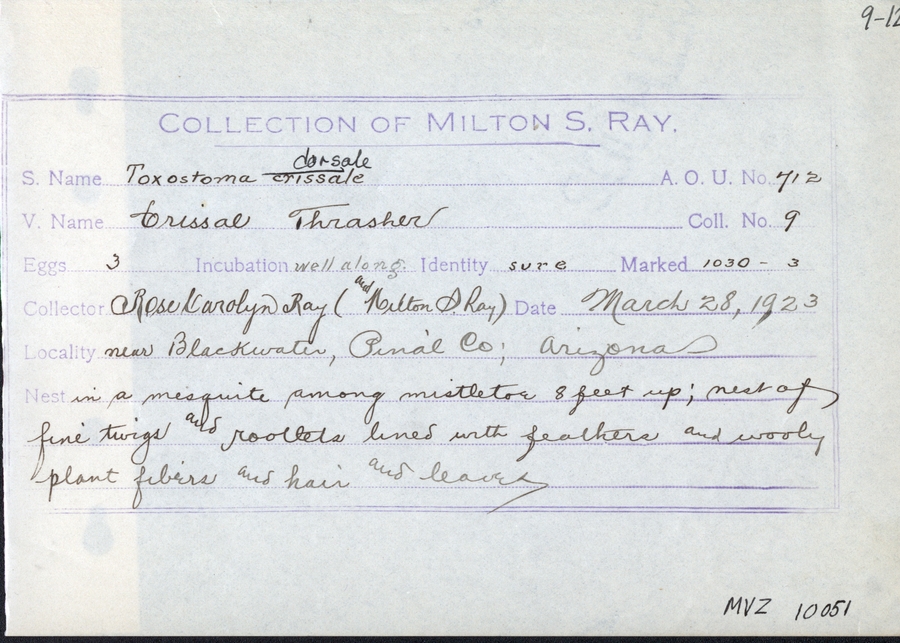 9-12
COLLECTION OF MILTON S. RAY.
dorsale
S. Name Toxostoma crissale A. O. U. No. 712
V. Name Crissal Thrasher Coll. No. 9
Eggs 3 Incubation well along. Identity sure Marked 1030 - 3
Collector Rose Carolyn Ray (and Milton S. Ray) Date March 28, 1923
Locality near Blackwater, Pinal Co; Arizona
Nest in a mesquite among mistletoe 8 feet up; nest of
fine twigs and rootlets lined with feathers and wooly
plant fibers and hair and leaves
MVZ 10051